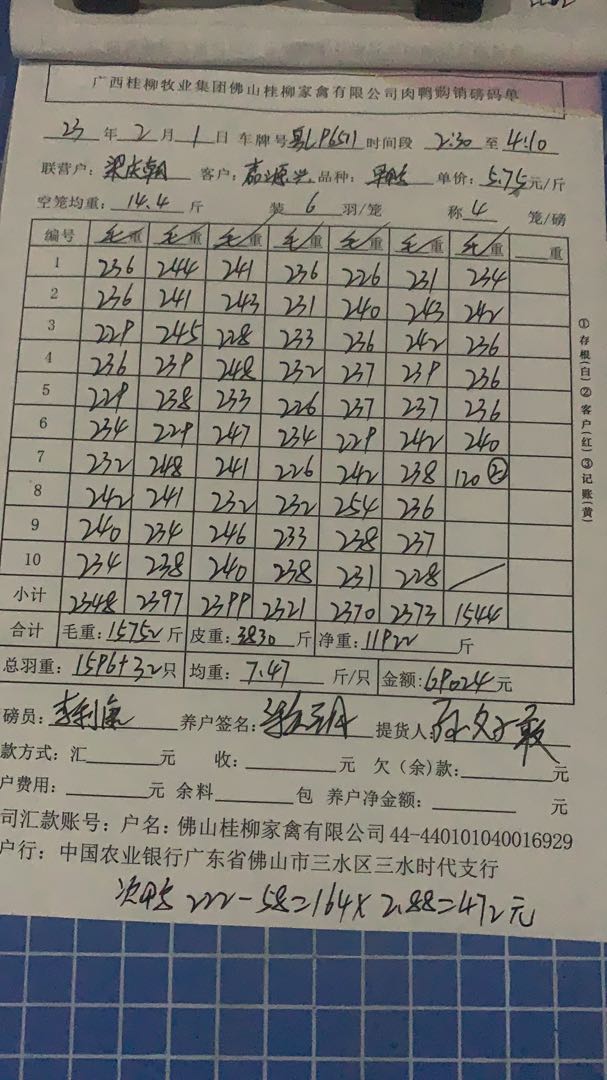 广西桂柳牧业集团佛山桂柳家禽有限公司肉鸭购销磅码单
23 年 2 月 1 日 车牌号 粤LP6511 时间段 2:30 至 4:10
联营户: 客户: 品种: 单价: 5.75 元/斤
空笼均重: 14.4 斤 装 6 羽/笼 称 4 笼/磅
编号 毛重 毛重 毛重 毛重 毛重 毛重 毛重 重
1 236 244 241 236 226 231 234
2 236 241 243 231 240 243 242
3 229 245 228 233 236 242 236
4 236 239 248 232 237 239 236
5 229 238 233 226 237 237 236
6 234 229 247 234 229 242 240
7 232 248 241 226 242 238 120 ②
8 242 241 232 232 254 236
9 240 234 246 233 238 237
10 234 238 240 238 231 228 /
小计 2348 2397 2399 2321 2370 2373 1544
合计 毛重: 15752 斤 皮重: 3830 斤 净重: 11922 斤
总羽重: 1596+32 只 均重: 7.47 斤/只 金额: 69024 元
磅员: 李利 养户签名: 提货人:
款方式: 汇 元 收: 元 欠(余)款: 元
户费用: 元 余料 包 养户净金额: 元
司汇款账号: 户名: 佛山桂柳家禽有限公司 44-440101040016929
户行: 中国农业银行广东省佛山市三水区三水时代支行
次鸭 222-58=164×2.88=472元
①存根(白)②客户(红)③记账(黄)